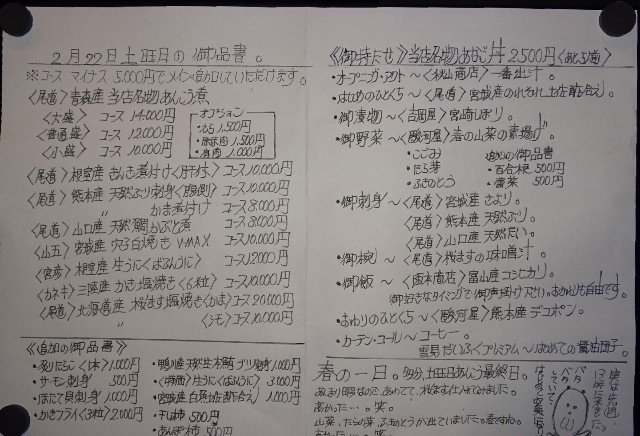 2月22日土曜日の御品書。
※コース マイナス 5,000円でメイン追加していただけます。
〈尾道〉青森産 当店名物あんこう煮
〈大盛〉 コース 14,000円
〈普通盛〉 コース 12,000円
〈小盛〉 コース 10,000円
オプション
1,500円
1,500円
1,000円
〈尾道〉根室産 コース10,000円
〈尾道〉熊本産 天然ぶり刺身〈腹側〉 コース8,000円
〃 かま煮付け コース8,000円
〈尾道〉山口産 天然鯛かぶと煮 コース8,000円
〈山五〉宮城産 穴子白焼き V-MAX コース10,000円
〈宮彦〉根室産 生うに コース12000円
〈カネキ〉三陸産 かき塩焼き〈6粒〉 コース10,000円
〈尾道〉北海道産 桜ます塩焼き〈かま〉 コース20,000円
〃 〈シモ〉 コース10,000円
《追加の御品書》
・炙りたらこ〈1本〉 1,000円
・サーモン刺身 500円
・ほたて貝刺身 1,000円
・かきフライ〈3粒〉 2,000円
1,000円
3,000円
1,000円
・干し柿 500円
・あんぽ柿 500円
《御持たせ》当店名物あなご丼 2,500円
・オープニング・アクト～〈秋山商店〉一番出汁。
・はじめのひとくち～〈尾道〉宮城産のれそれ土佐酢合え。
・御漬物～〈吉岡屋〉宮崎しぼり。
・御野菜～〈駿河屋〉春の山菜の素揚げ。
・こごみ
・たら芽
・ふきのとう
追加の御品書
・百合根 500円
500円
・御刺身～〈尾道〉宮城産 さより。
〈尾道〉熊本産 天然ぶり。
〈尾道〉山口産 天然たい。
・御椀～〈尾道〉桜ますの味噌汁。
・御飯～〈阪本商店〉富山産コシヒカリ。
御好きなタイミングで御声掛け下さい。おかわりも自由です。
・おわりのひとくち～〈駿河屋〉熊本産 デコポン。
・カーテン・コール～コーヒー。
雪見だいふくプレミアム～はじめての醤油団子。
春の一日。多分、土曜日あんこう最終日。
高かった…。笑。
山菜、たらの芽 ふきのとうが出ていました。春ですね。